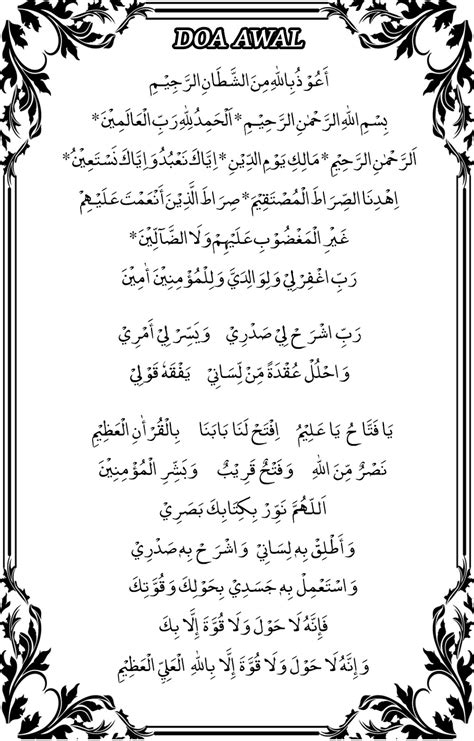 DOA AWAL
أَعُوْذُ بِاللهِ مِنَ الشَّطَانِ الرَّجِيْمِ
بِسْمِ اللهِ الرَّحْمٰنِ الرَّحِيْمِ * اَلْحَمْدُ لِلّٰهِ رَبِّ الْعَالَمِيْنَ *
اَلرَّحْمٰنِ الرَّحِيْمِ * مَالِكِ يَوْمِ الدِّيْنِ * اِيَّاكَ نَعْبُدُ وَاِيَّاكَ نَسْتَعِيْنُ *
اِهْدِنَا الصِّرَاطَ الْمُسْتَقِيْمَ * صِرَاطَ الَّذِيْنَ أَنْعَمْتَ عَلَيْهِمْ
غَيْرِ الْمَغْضُوْبِ عَلَيْهِمْ وَلَا الضَّآلِّيْنَ *
رَبِّ اغْفِرْ لِيْ وَلِوَالِدَيَّ وَلِلْمُؤْمِنِيْنَ أٰمِيْنَ
رَبِّ اشْرَحْ لِيْ صَدْرِيْ وَيَسِّرْ لِيْ أَمْرِيْ
وَاحْلُلْ عُقْدَةً مِّنْ لِّسَانِيْ يَفْقَهُ قَوْلِيْ
يَا فَتَّاحُ يَا عَلِيْمُ اِفْتَحْ لَنَا بَابَنَا بِالْقُرْأٰنِ الْعَظِيْمِ
نَصْرٌ مِّنَ اللهِ وَفَتْحٌ قَرِيْبٌ وَبَشِّرِ الْمُؤْمِنِيْنَ
اَللّٰهُمَّ نَوِّرْ بِكِتَابِكَ بَصَرِيْ
وَأَطْلِقْ بِهِ لِسَانِيْ وَاشْرَحْ بِهِ صَدْرِيْ
وَاسْتَعْمِلْ بِهِ جَسَدِيْ بِحَوْلِكَ وَقُوَّتِكَ
فَإِنَّهُ لَا حَوْلَ وَلَا قُوَّةَ إِلَّا بِكَ
وَإِنَّهُ لَا حَوْلَ وَلَا قُوَّةَ إِلَّا بِاللهِ الْعَلِيِّ الْعَظِيْمِ